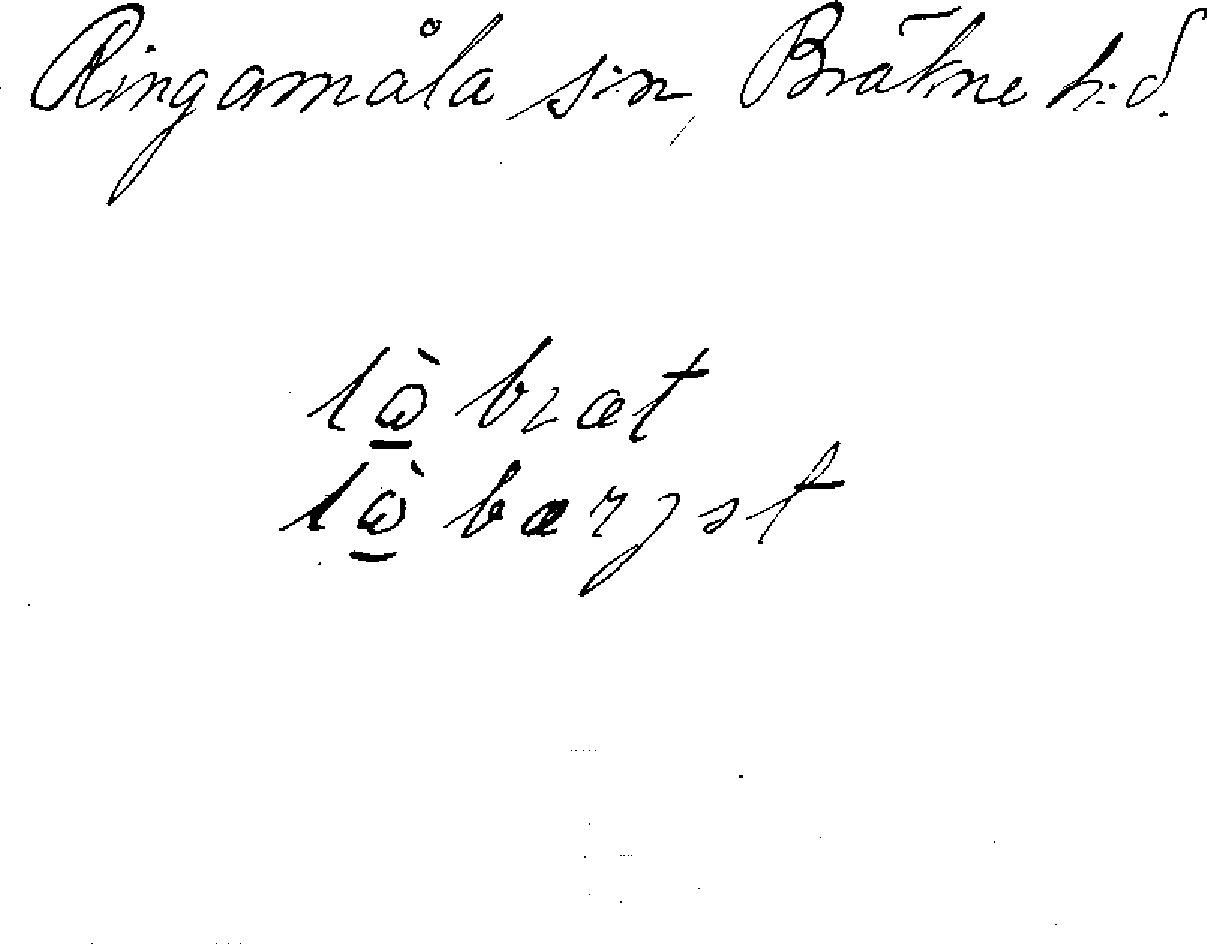 Ringamåla s:n, Bräkne h:d.
lὼ̱ bræt
lὼ̱ bærjət